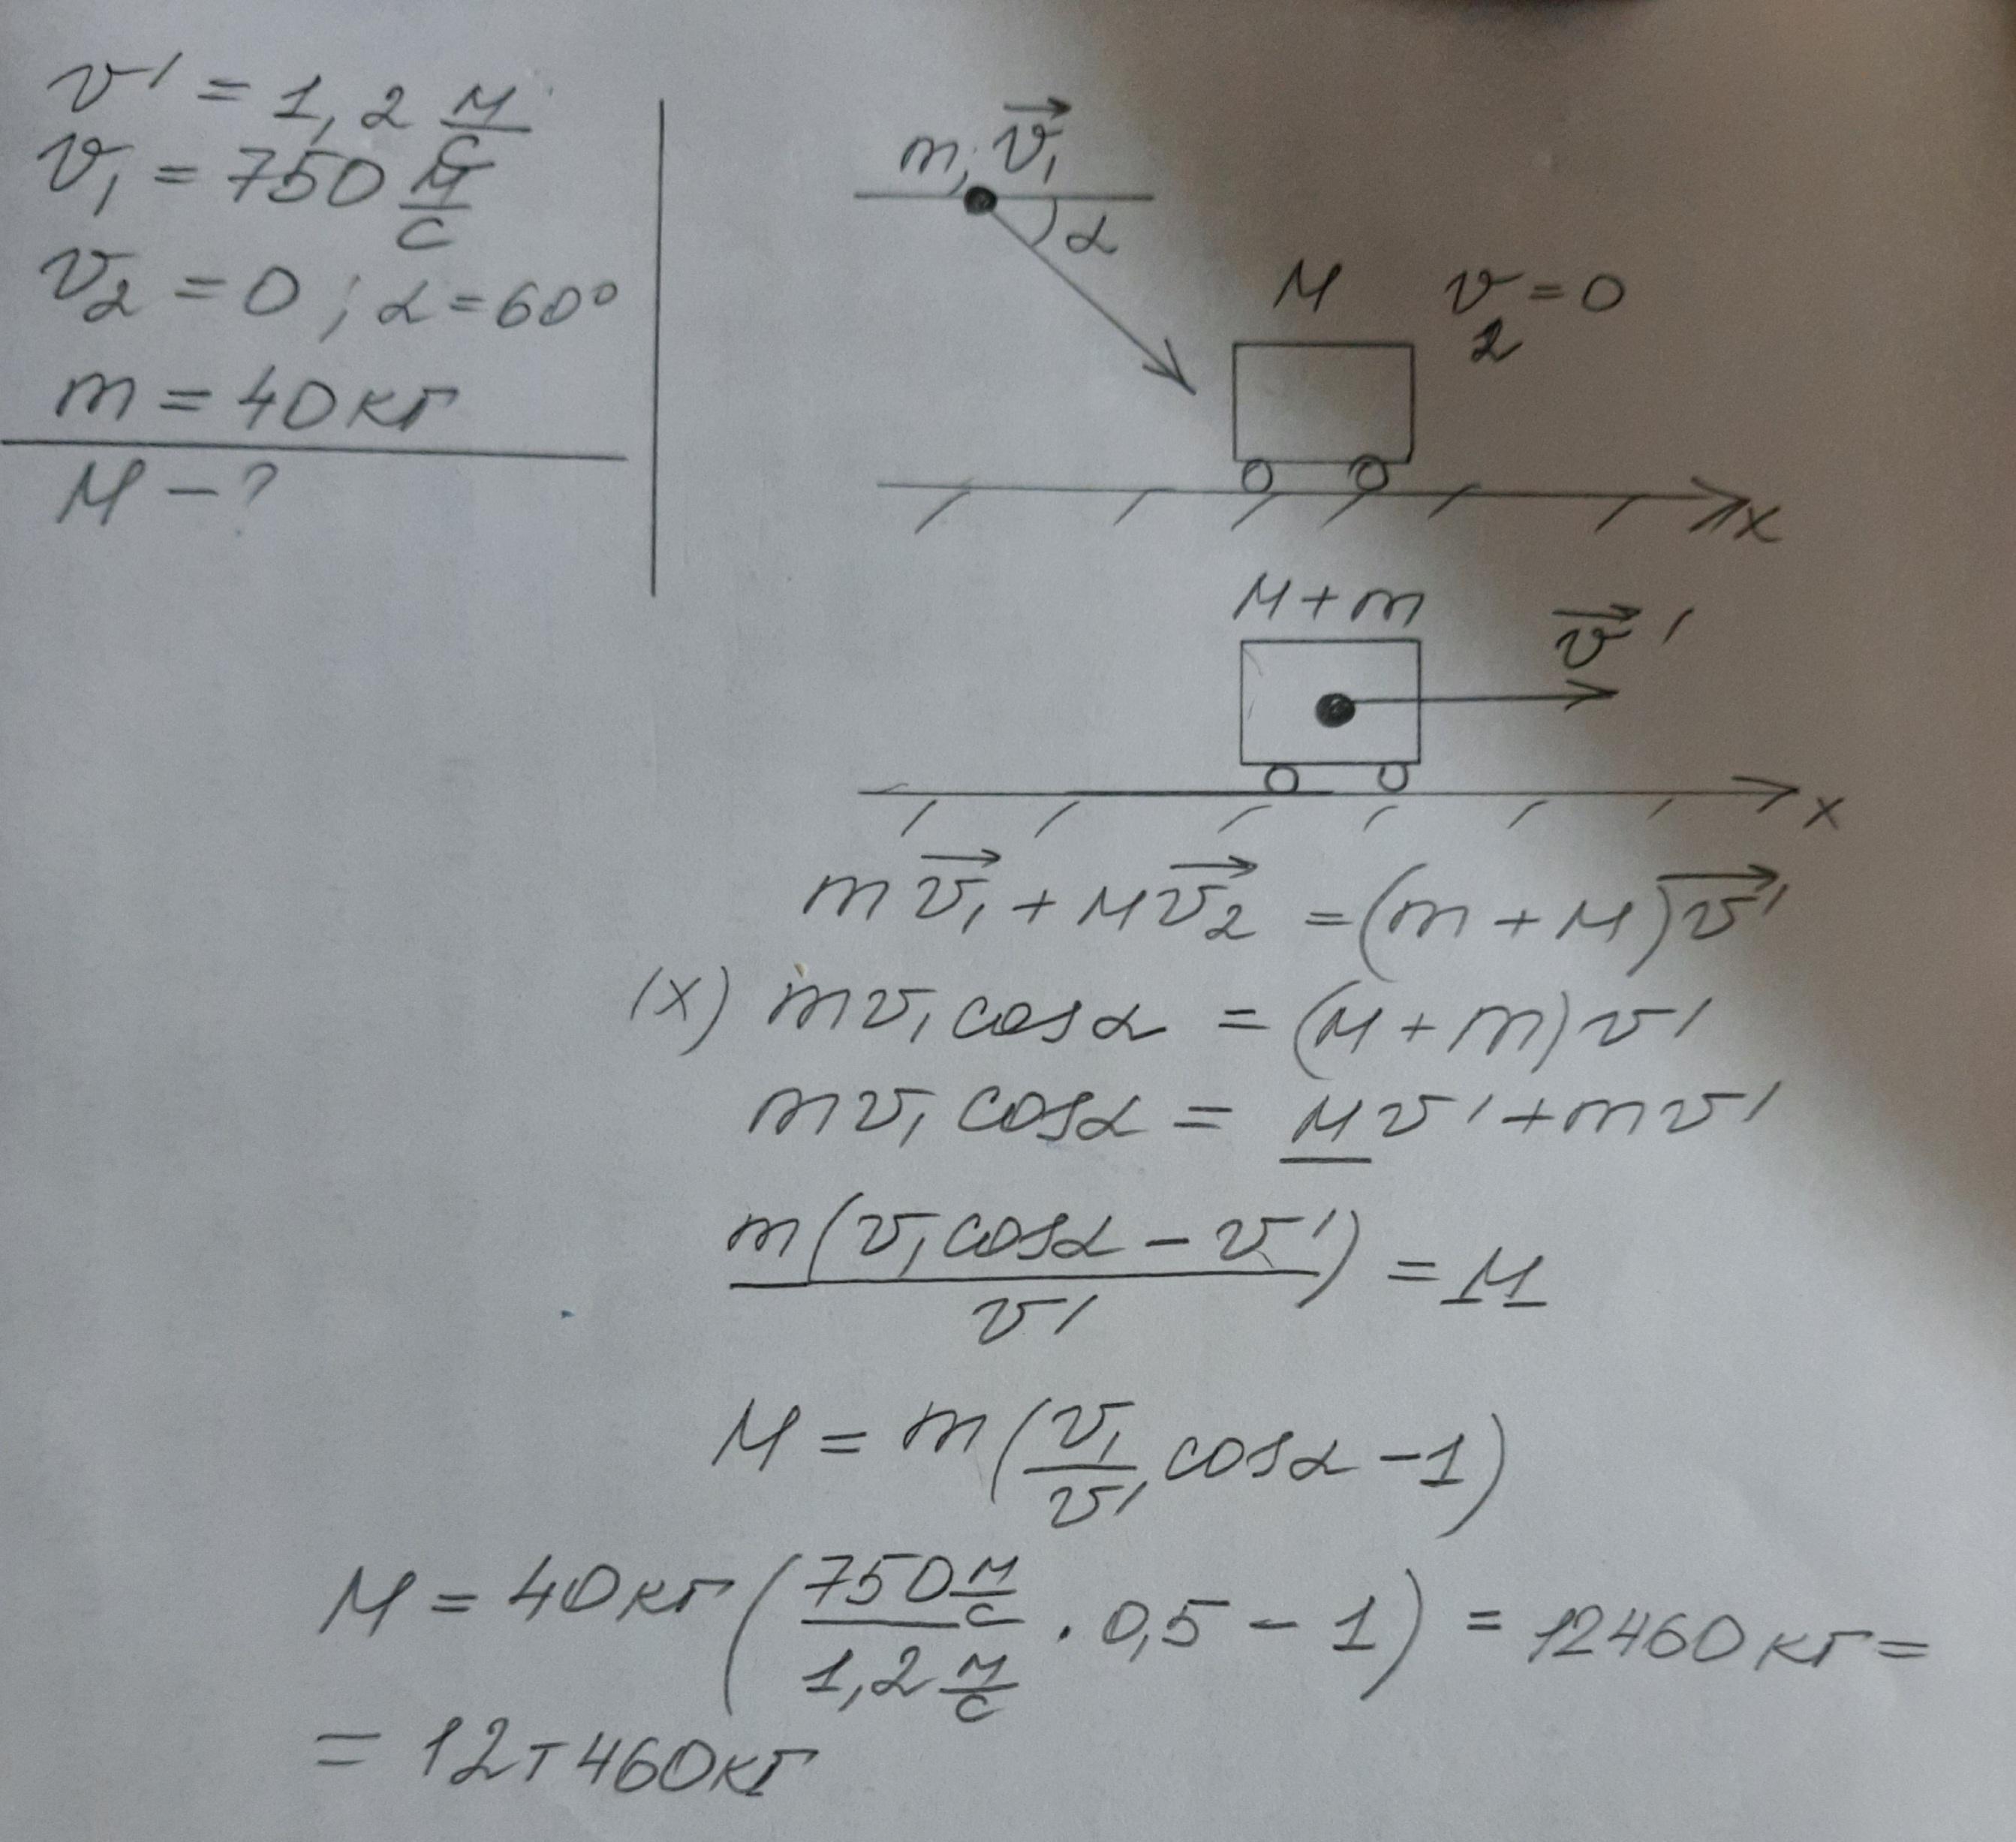 v' = 1,2 м/с
v₁ = 750 м/с
v₂ = 0 ; α = 60°
m = 40 кг
M – ?
m, v⃗₁
α
M v₂ = 0
x
M + m
v⃗'
x
m v⃗₁ + M v⃗₂ = (m + M) v⃗'
(x) m v₁ cos α = (M + m) v'
m v₁ cos α = M v' + m v'
m (v₁ cos α – v') / v' = M
M = m (v₁/v' cos α – 1)
M = 40 кг (750 м/с / 1,2 м/с · 0,5 – 1) = 12460 кг =
= 12 т 460 кг